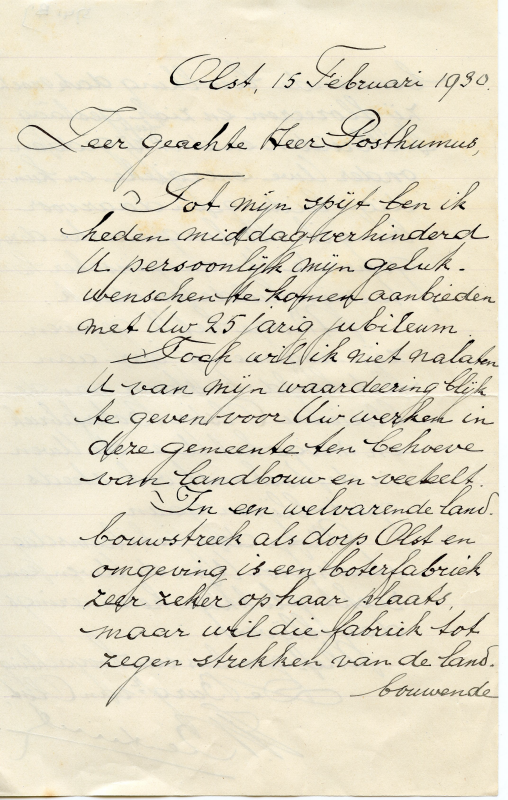 Olst, 15 Februari 1930.
Zeer geachte Heer Posthumus,
Tot mijn spijt ben ik
heden middag verhinderd
U persoonlijk mijn geluk-
wenschen te komen aanbieden
met Uw 25 jarig jubileum.
Toch wil ik niet nalaten
U van mijn waardeering blijk
te geven voor Uw werken in
deze gemeente ten behoeve
van landbouw en veeteelt.
In een welvarende land-
bouwstreek als dorp Olst en
omgeving is een boterfabriek
zeer zeker op haar plaats,
maar wil die fabriek tot
zegen strekken van de land-
bouwende